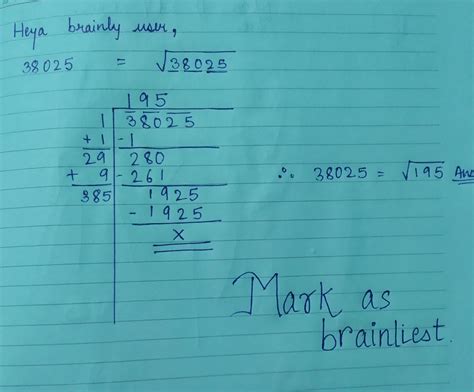 Heya brainly user,
38025 = √38025
195
1 38025
+ 1 -1
29 280
+ 9 - 261
385 1925
- 1925
x
∴ 38025 = √195 Ans
Mark as
brainliest.